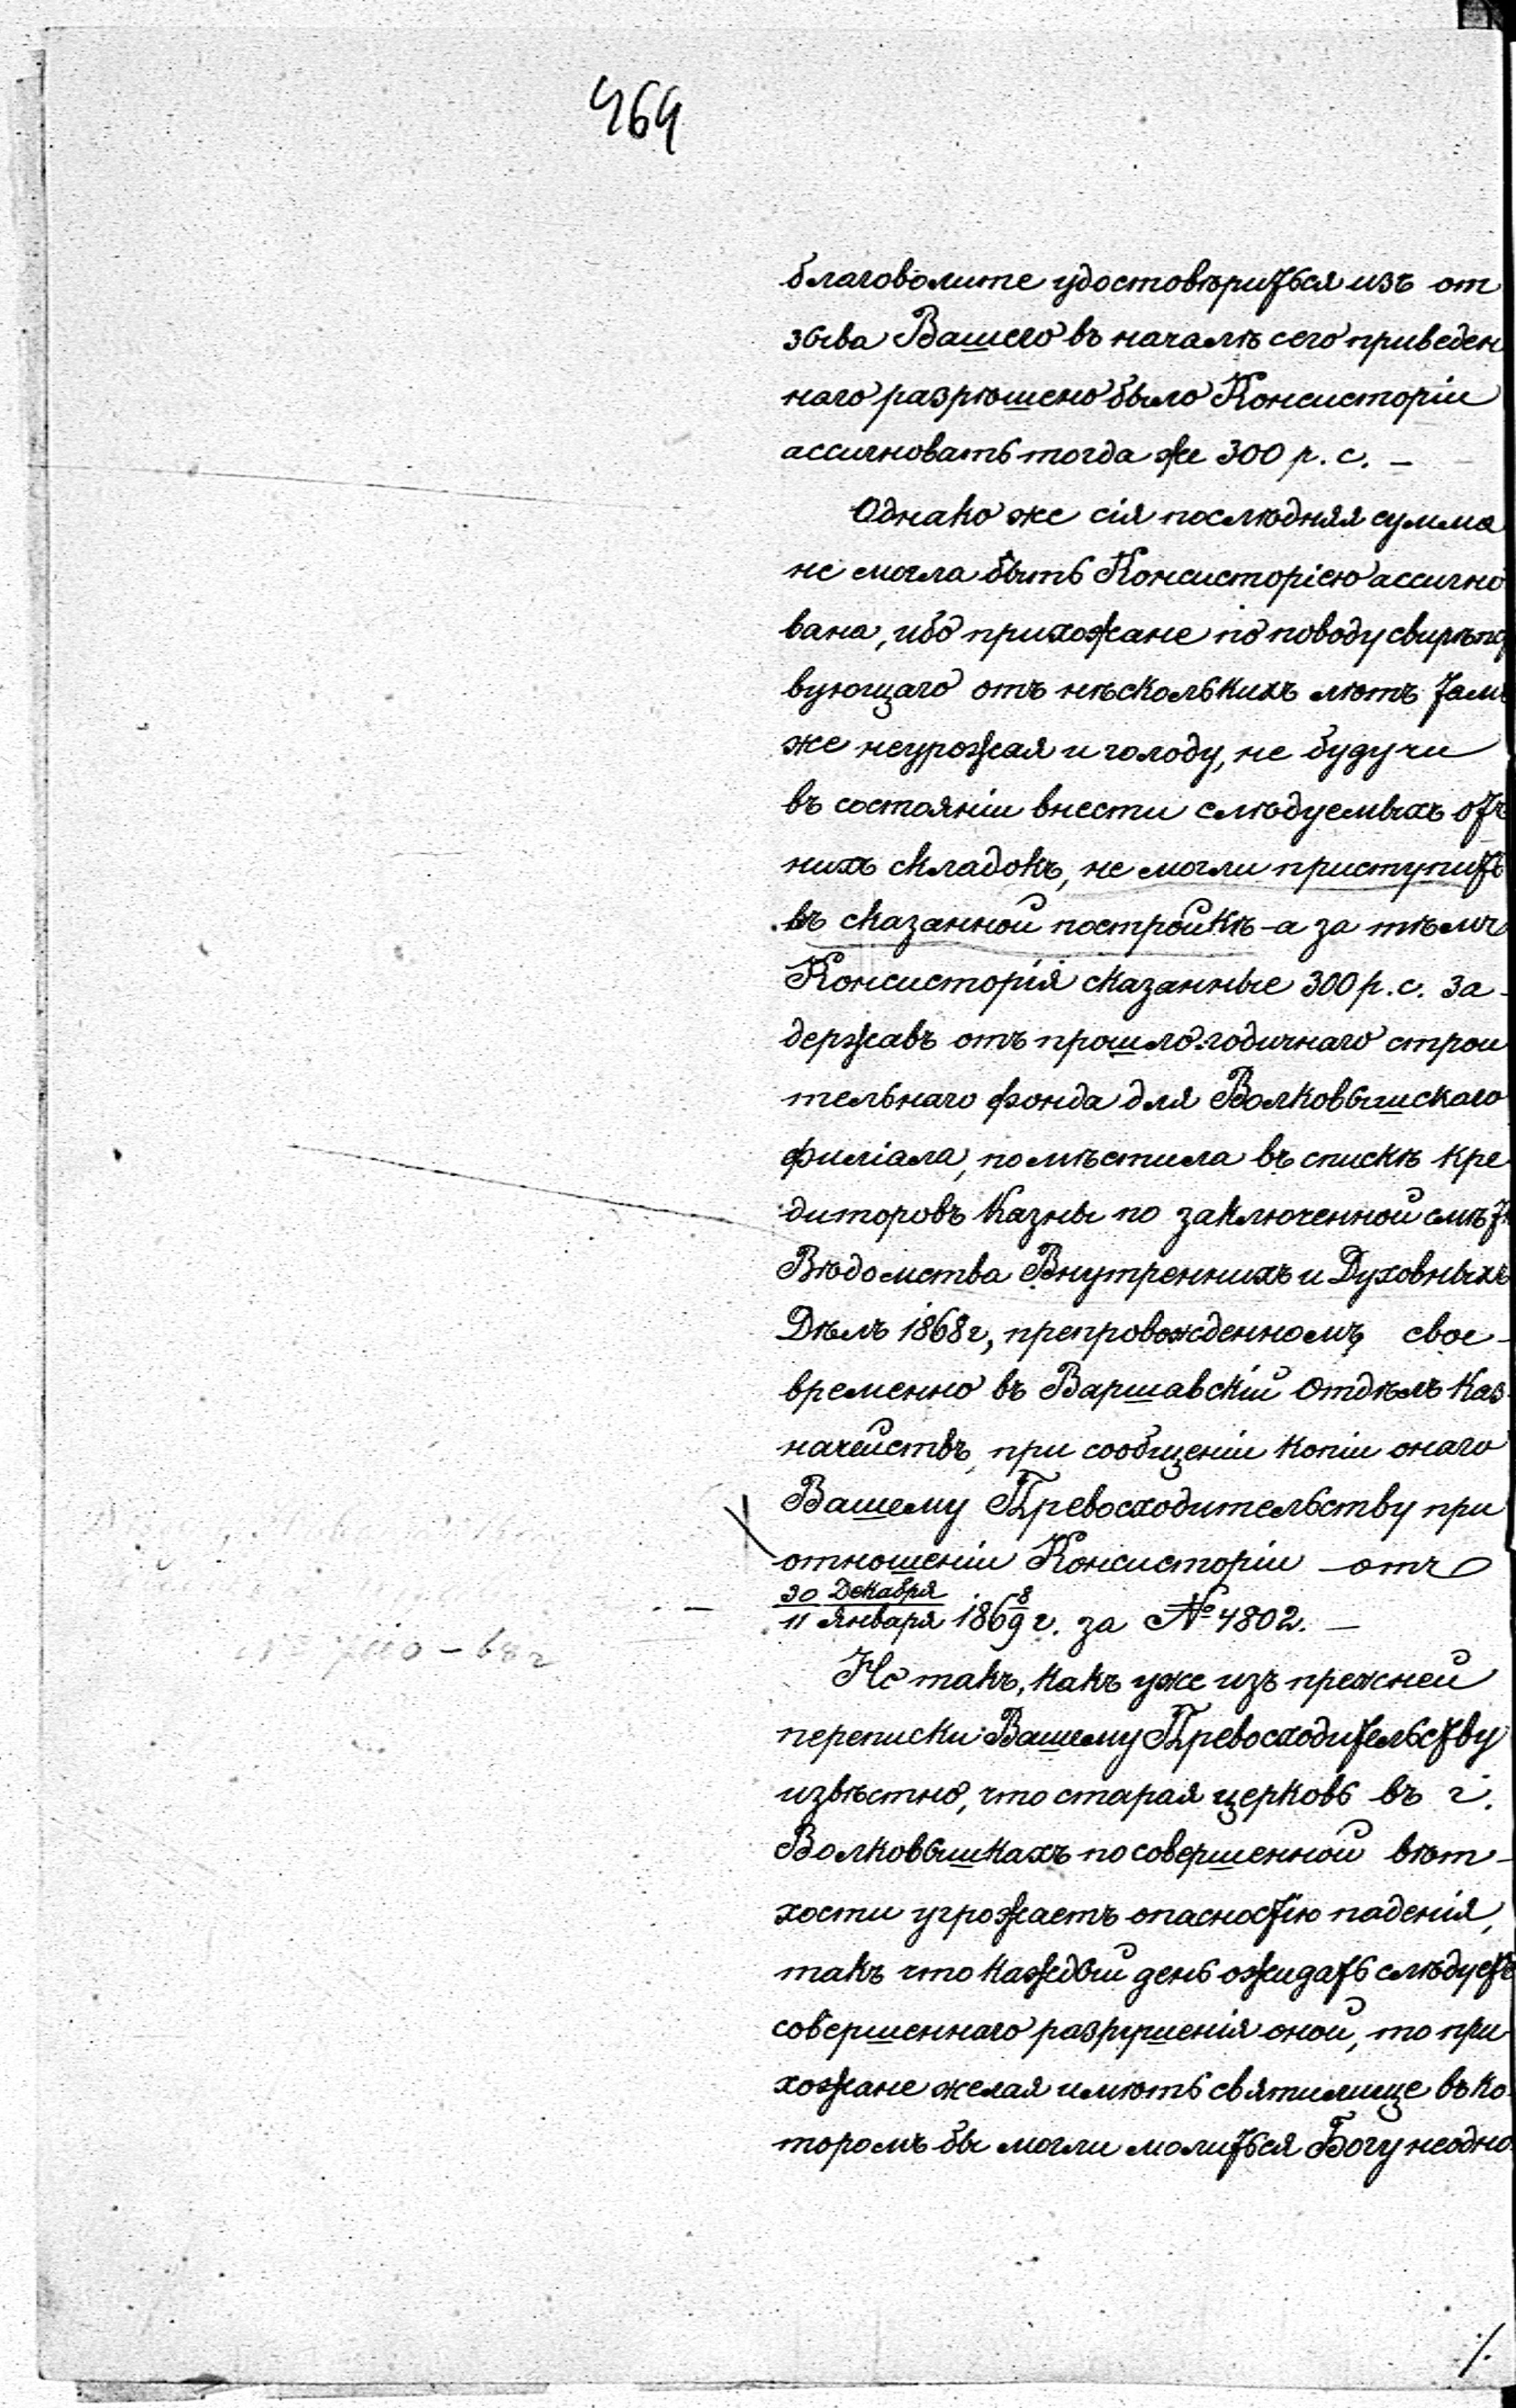 464
благоволите удостовѣриться изъ от
зыва Вашего въ началѣ сего приведен
наго разрѣшено было Консисторіи
ассигновать тогда же 300 р. с. —
Однако же сія послѣдняя сумма
не могла быть Консисторіею ассигно
вана, ибо прихожане по поводу свирѣпст
вующаго отъ нѣсколькихъ лѣтъ тамъ
же неурожая и голоду, не будучи
въ состояніи внести слѣдуемыхъ отъ
нихъ складокъ, не могли приступить
къ сказанной постройкѣ - а за тѣмъ
Консисторія сказанные 300 р. с. за-
державъ отъ прошло-годичнаго строи
тельнаго фонда для Волковышскаго
филіала, помѣстила въ спискѣ кре
диторовъ Казны по заключенной смѣтѣ
Вѣдомства Внутреннихъ и Духовныхъ
Дѣлъ 1868 г, препровожденномъ свое-
временно въ Варшавскій Отдѣлъ Каз
начействъ, при сообщеніи копіи онаго
Вашему Превосходительству при
отношеніи Консисторіи отъ
30 Декабря / 11 Января 186 8/9 г. за № 4802. —
Но такъ, какъ уже изъ прежней
переписки Вашему Превосходительству
извѣстно, что старая церковь въ г.
Волковышкахъ по совершенной вѣт-
хости угрожаетъ опасностію паденія,
такъ что каждый день ожидать слѣдуетъ
совершеннаго разрушенія оной, то при
хожане желая имѣть святилище въ ко
торомъ бы могли молиться Богу неодно
./.